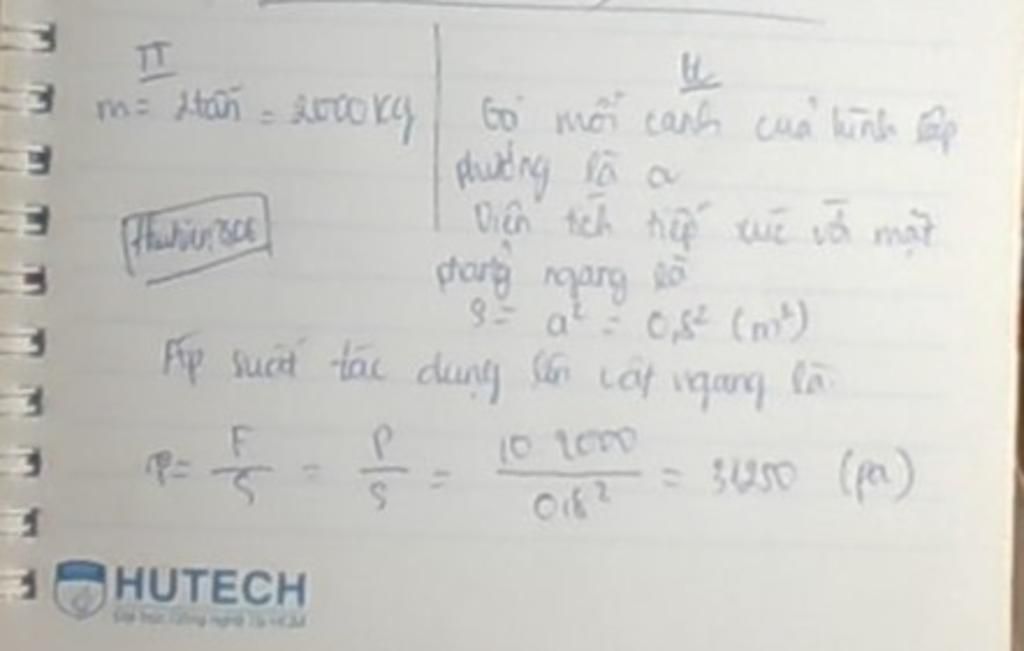 TT
m = 2 tấn = 2000 Kg
thuhien306
LG
Gọ mỗi cạnh của hình lập
phương là a
Diện tích tiếp xúc với mặt
phẳng ngang là
S = a² = 0,8² (m²)
Áp suất tác dụng lên vật ngang là
P = F/S = P/S = 10 2000/0,8² = 31250 (pa)
HUTECH
Đại học Công nghệ Tp.HCM